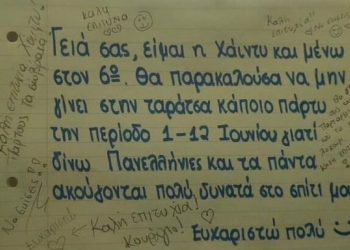 Καλή
επιτυχία
Καλή
επιτυχία!!
Γειά σας, είμαι η Χάιντυ και μένω
στον 6º. Θα παρακαλούσα να μην
γίνει στην ταράτσα κάποιο πάρτυ
την περίοδο 1-12 Ιουνίου γιατί
δίνω Πανελλήνιες και τα πάντα
ακούγονται πολύ δυνατά στο σπίτι μου
Ευχαριστώ πολύ
Καλή επιτυχία!
Κουράγιο!